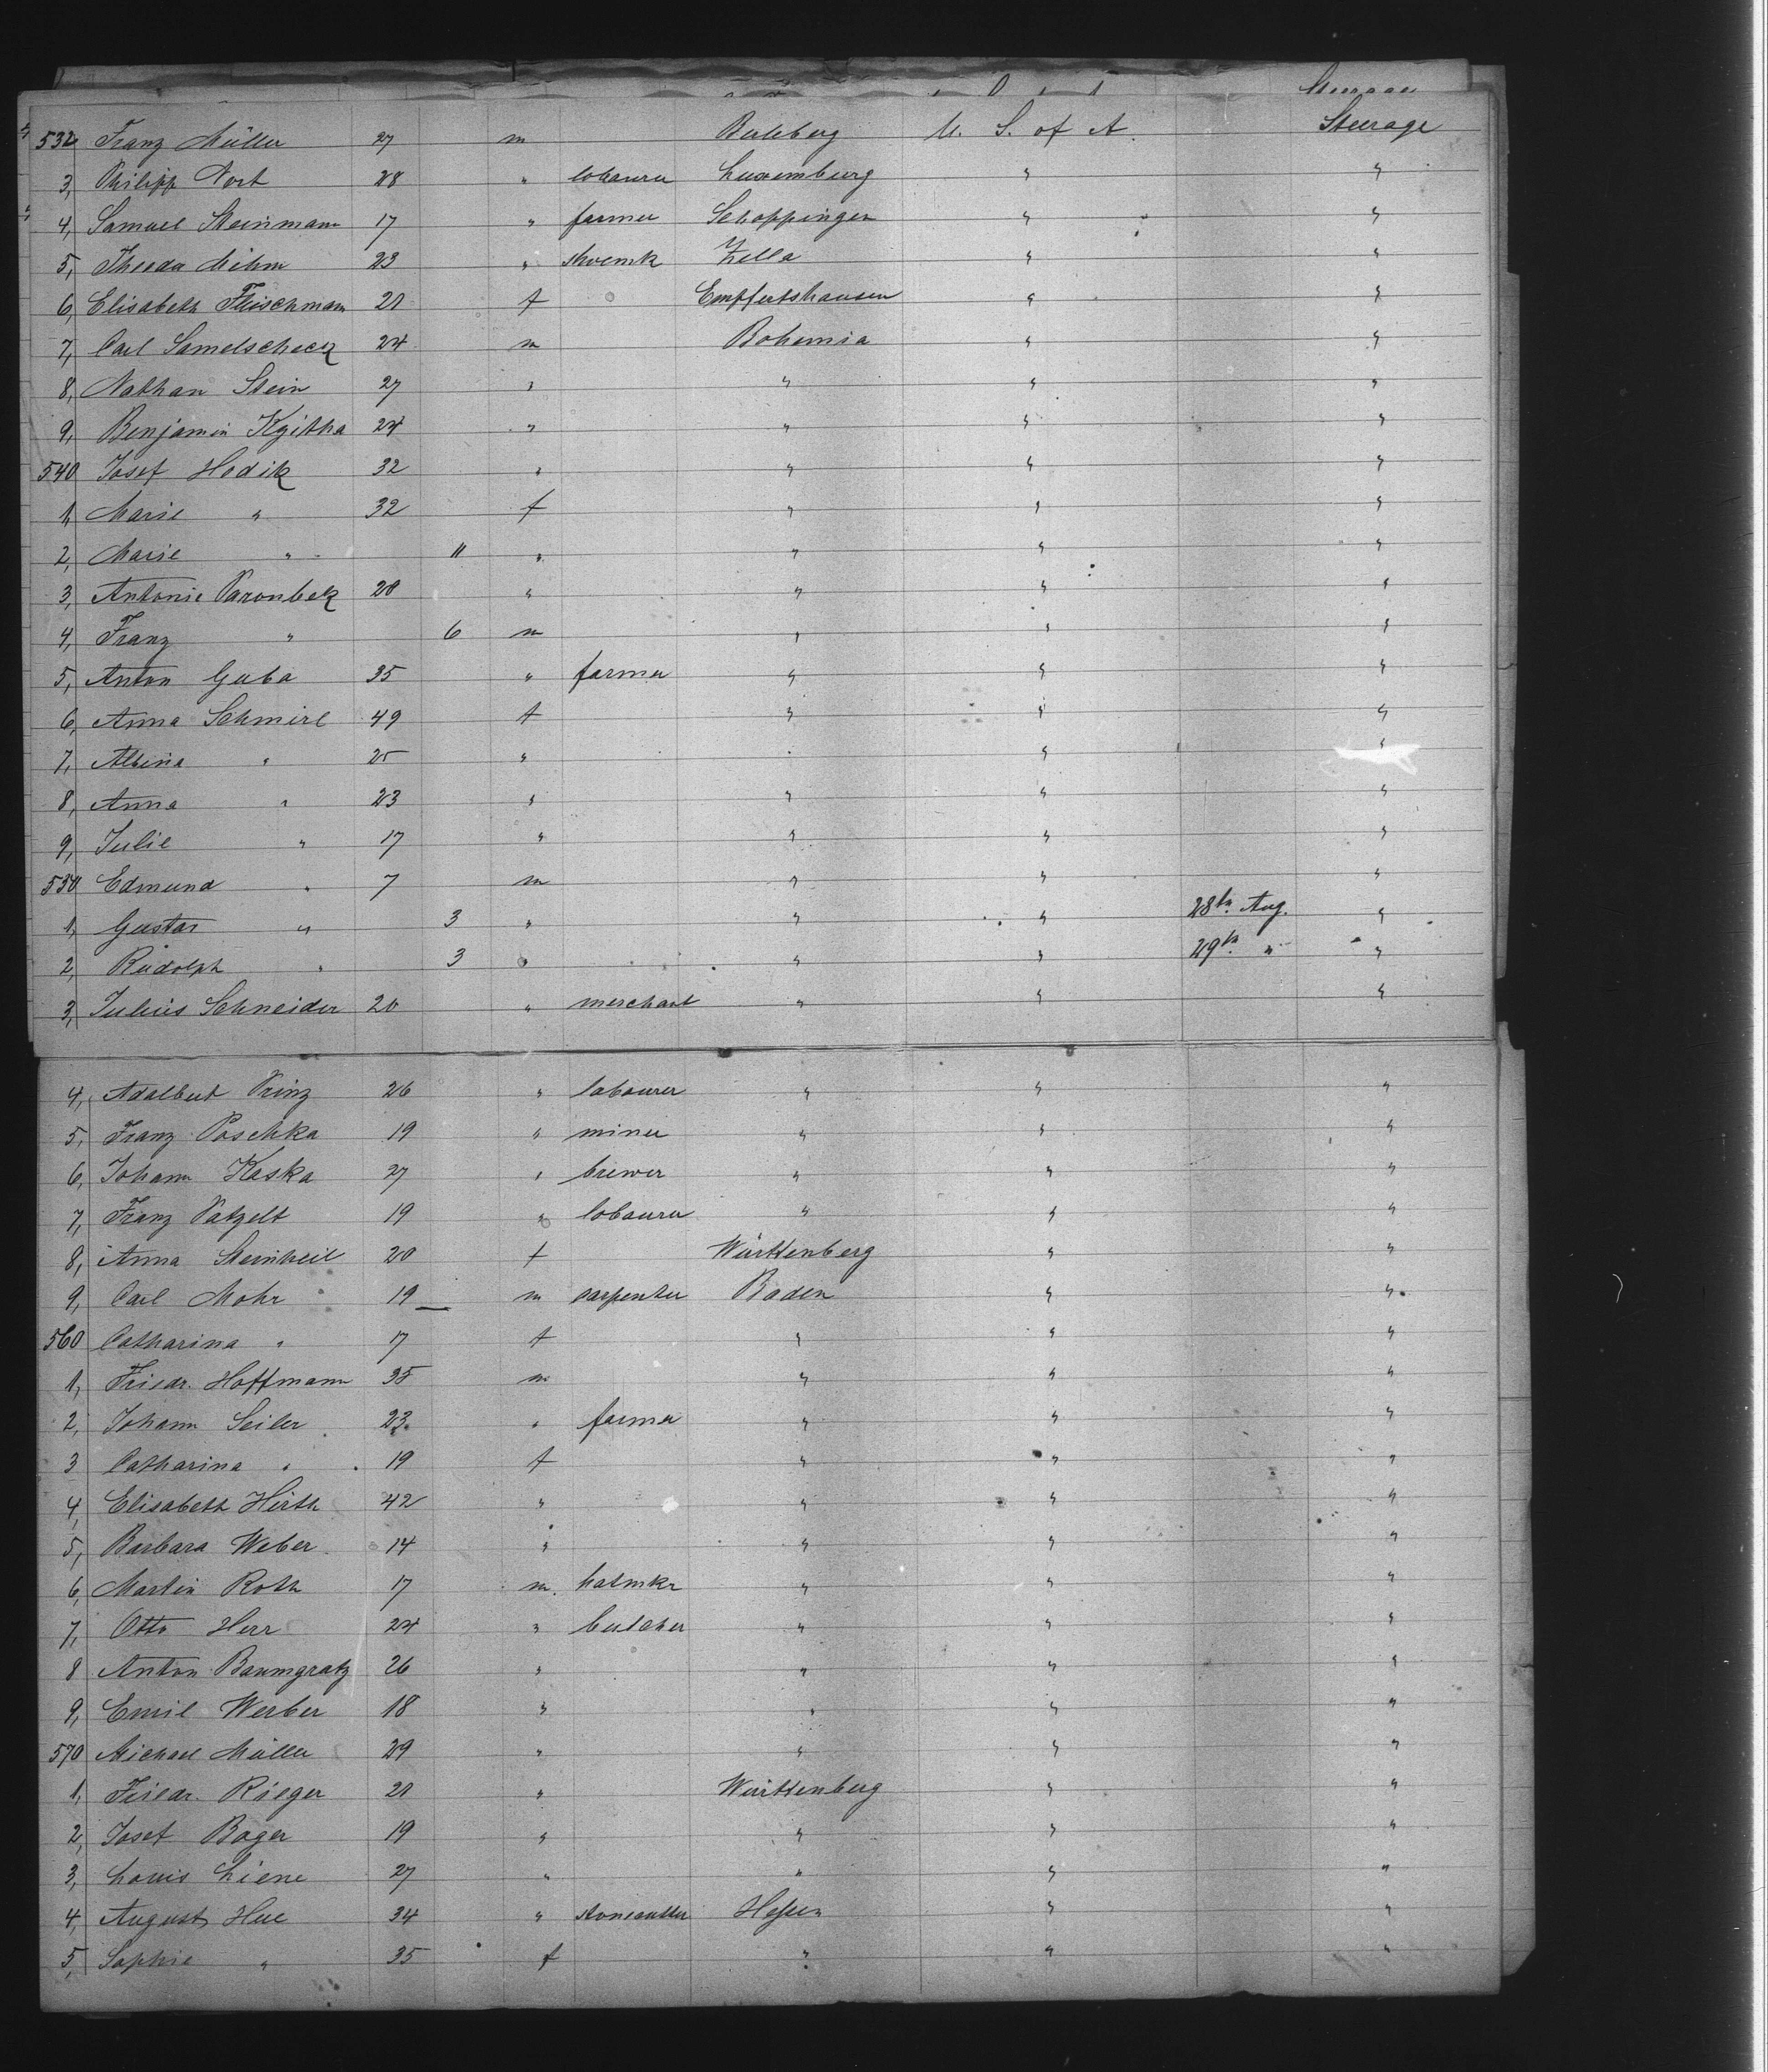 532 Franz Müller 27 m U. S. of A. Steerage
3, Philipp Nort 28 " labourer Luxemburg " "
4, Samuel Steinmann 17 " farmer Schoppingen " "
5, Theodor Mihm 23 " shoemk Zella " "
6, Elisabeth Fleischmann 21 f Empfertshausen " "
7, Carl Samelscheck 24 m Bohemia " "
8, Nathan Stein 27 " " " "
9, Benjamin Kgitha 24 " " " "
540 Josef Hodik 32 " " " "
1, Marie " 32 f " " "
2, Marie " 11 " " " "
3, Antonie Paronbek 28 " " " "
4, Franz " 6 m " " "
5, Anton Guba 35 " farmer " " "
6, Anna Schmirl 49 f " " "
7, Albina " 25 " " " "
8, Anna " 23 " " " "
9, Julie " 17 " " " "
550 Edmund " 7 m " " "
1, Gustav " 3 " " " 28th Aug. "
2, Rudolph " 3 " " " 29th " "
3, Julius Schneider 20 " merchant " " "
4, Adalbert Prinz 26 " labourer " " "
5, Franz Poschka 19 " miner " " "
6, Johann Kaska 27 " brewer " " "
7, Franz Patzelt 19 " labourer " " "
8, Anna Steinheil 20 f Württenberg " "
9, Carl Mohr 19 m carpenter Baden " "
560 Catharina " 17 f " " "
1, Friedr. Hoffmann 35 m " " "
2, Johann Seiler 23 " farmer " " "
3 Catharina " 19 f " " "
4, Elisabeth Hirth 42 " " " "
5, Barbara Weber 14 " " " "
6, Martin Roth 17 m. hatmkr " " "
7, Otto Herr 24 " butcher " " "
8 Anton Baumgratz 26 " " " "
9, Emil Werber 18 " " " "
570 Michael Müller 29 " " " "
1, Friedr. Rieger 21 " Württenberg " "
2, Josef Bager 19 " " " "
3, Louis Liene 27 " " " "
4, August Hue 34 " stonecutter Hessen " "
5, Sophie " 35 f " " "